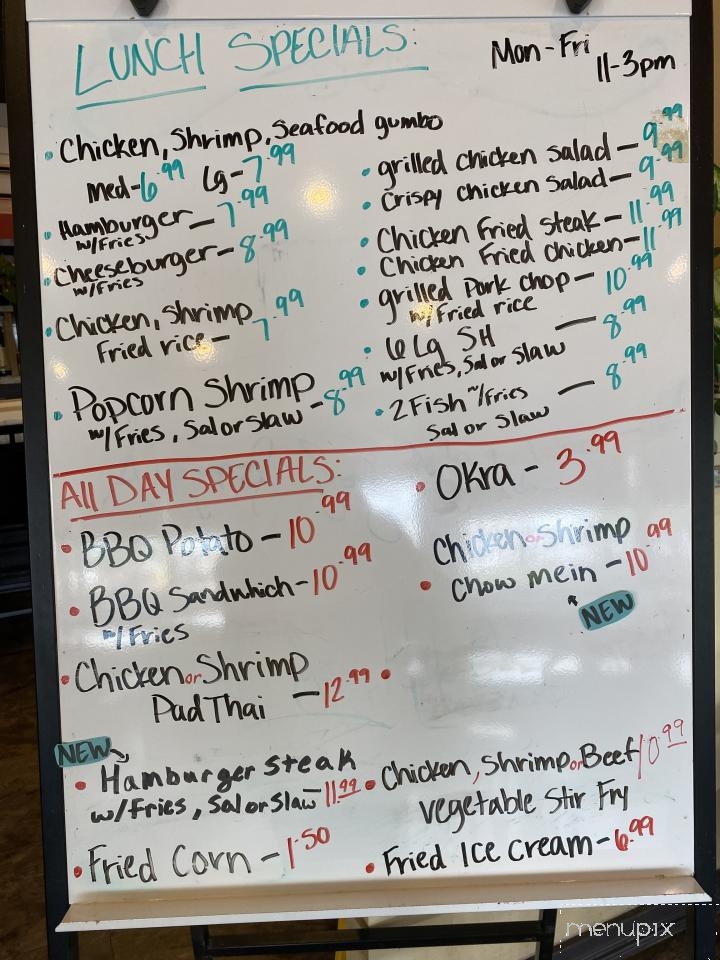 LUNCH SPECIALS:
Mon-Fri
11-3pm
• Chicken, Shrimp, Seafood gumbo
med-6.99 Lg-7.99
• Hamburger - 7.99
w/Fries
• Cheeseburger - 8.99
w/Fries
• Chicken, Shrimp
Fried rice - 7.99
• Popcorn Shrimp
w/Fries, Sal or Slaw - 8.99
• grilled chicken salad - 9.99
• Crispy chicken Salad - 9.99
• Chicken Fried steak - 11.99
• Chicken Fried chicken - 11.99
• grilled Pork chop - 10.99
w/Fried rice
• 6 Lg SH - 8.99
w/Fries, Sal or Slaw
• 2 Fish w/Fries - 8.99
Sal or Slaw
All DAY SPECIALS:
• BBQ Potato - 10.99
• BBQ Sandwhich - 10.99
w/Fries
• Chicken or Shrimp
Pad Thai - 12.99
NEW
• Hamburger steak
w/Fries, Sal or Slaw - 11.99
• Fried Corn - 1.50
• Okra - 3.99
Chicken or Shrimp
• Chow mein - 10.99
NEW
• Chicken, Shrimp or Beef 10.99
Vegetable Stir Fry
• Fried Ice Cream - 6.99
menupix